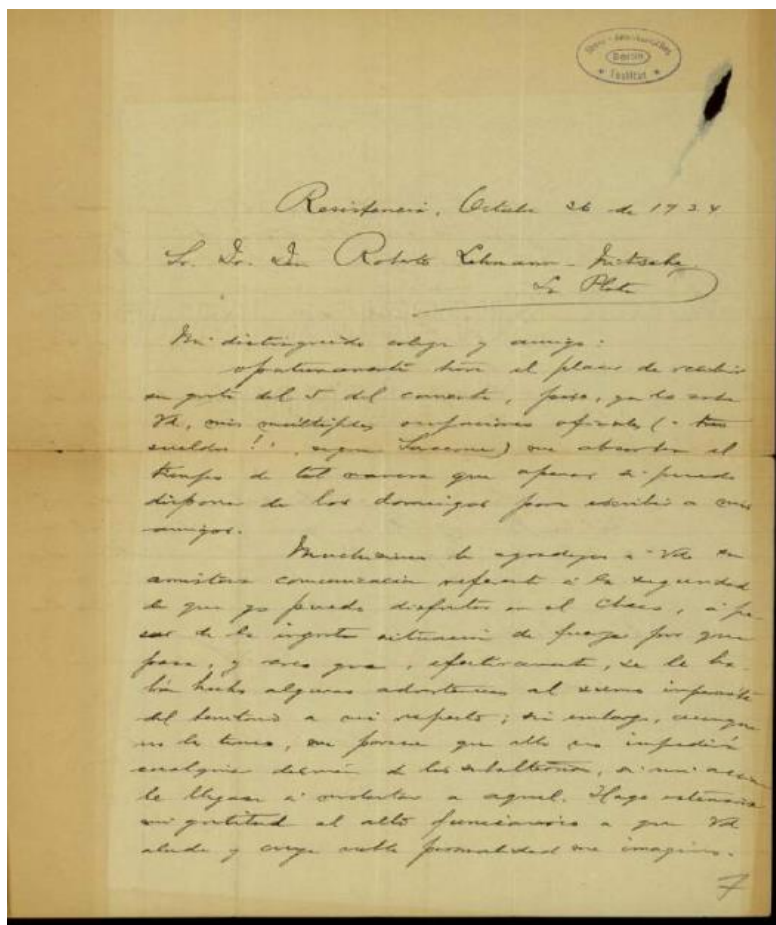 Ibero-Amerikanisches
Berlin
Institut
Resistencia, Octubre 26 de 1924
Sr. Dr. Don Roberto Lehmann-Nitsche
La Plata
Mi distinguido colega y amigo:
Oportunamente tuve el placer de recibir
su grata del 5 del corriente, pero, ya lo sabe
Vd, mis múltiples ocupaciones oficiales (
sueldos!!, según) me absorben el
tiempo de tal manera que apenas si puedo
disponer de los domingos para escribir a mis
amigos.
Muchísimo le agradezco a Vd su
amistosa comunicación referente á la seguridad
de que yo puedo disfrutar en el Chaco, á pe-
sar de la ingrata situación de fuerza por que
pasa, y creo que, efectivamente, se le ha-
brán hecho algunas advertencias al
del territorio a mi respecto; sin embargo, aunque
no le temo, me parece que ello no impedirá
cualquier desmán de los subalternos, si mi
le llegase á molestar a aquel. Hago extensiva
mi gratitud al alto funcionario a que Vd
alude y cuya noble me imagino.
7